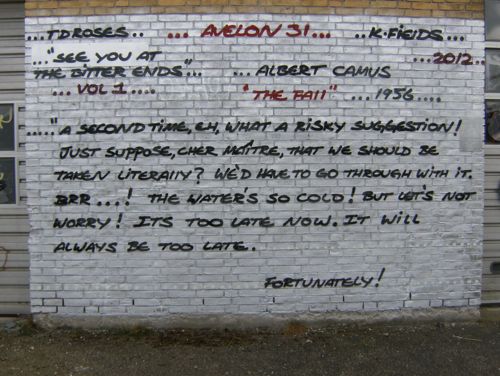 ...TDROSES.. ... AVELON 31... ..K-FIELDS...
..."SEE YOU AT ...2012..
THE BITTER ENDS"... ... ALBERT CAMUS
... VOL 1.... "THE FALL" ...1956....
....."A SECOND TIME, EH, WHAT A RISKY SUGGESTION!
JUST SUPPOSE, CHER MAÎTRE, THAT WE SHOULD BE
TAKEN LITERALLY? WE'D HAVE TO GO THROUGH WITH IT.
BRR...! THE WATER'S SO COLD! BUT LET'S NOT
WORRY! ITS TOO LATE NOW. IT WILL
ALWAYS BE TOO LATE.
FORTUNATELY!